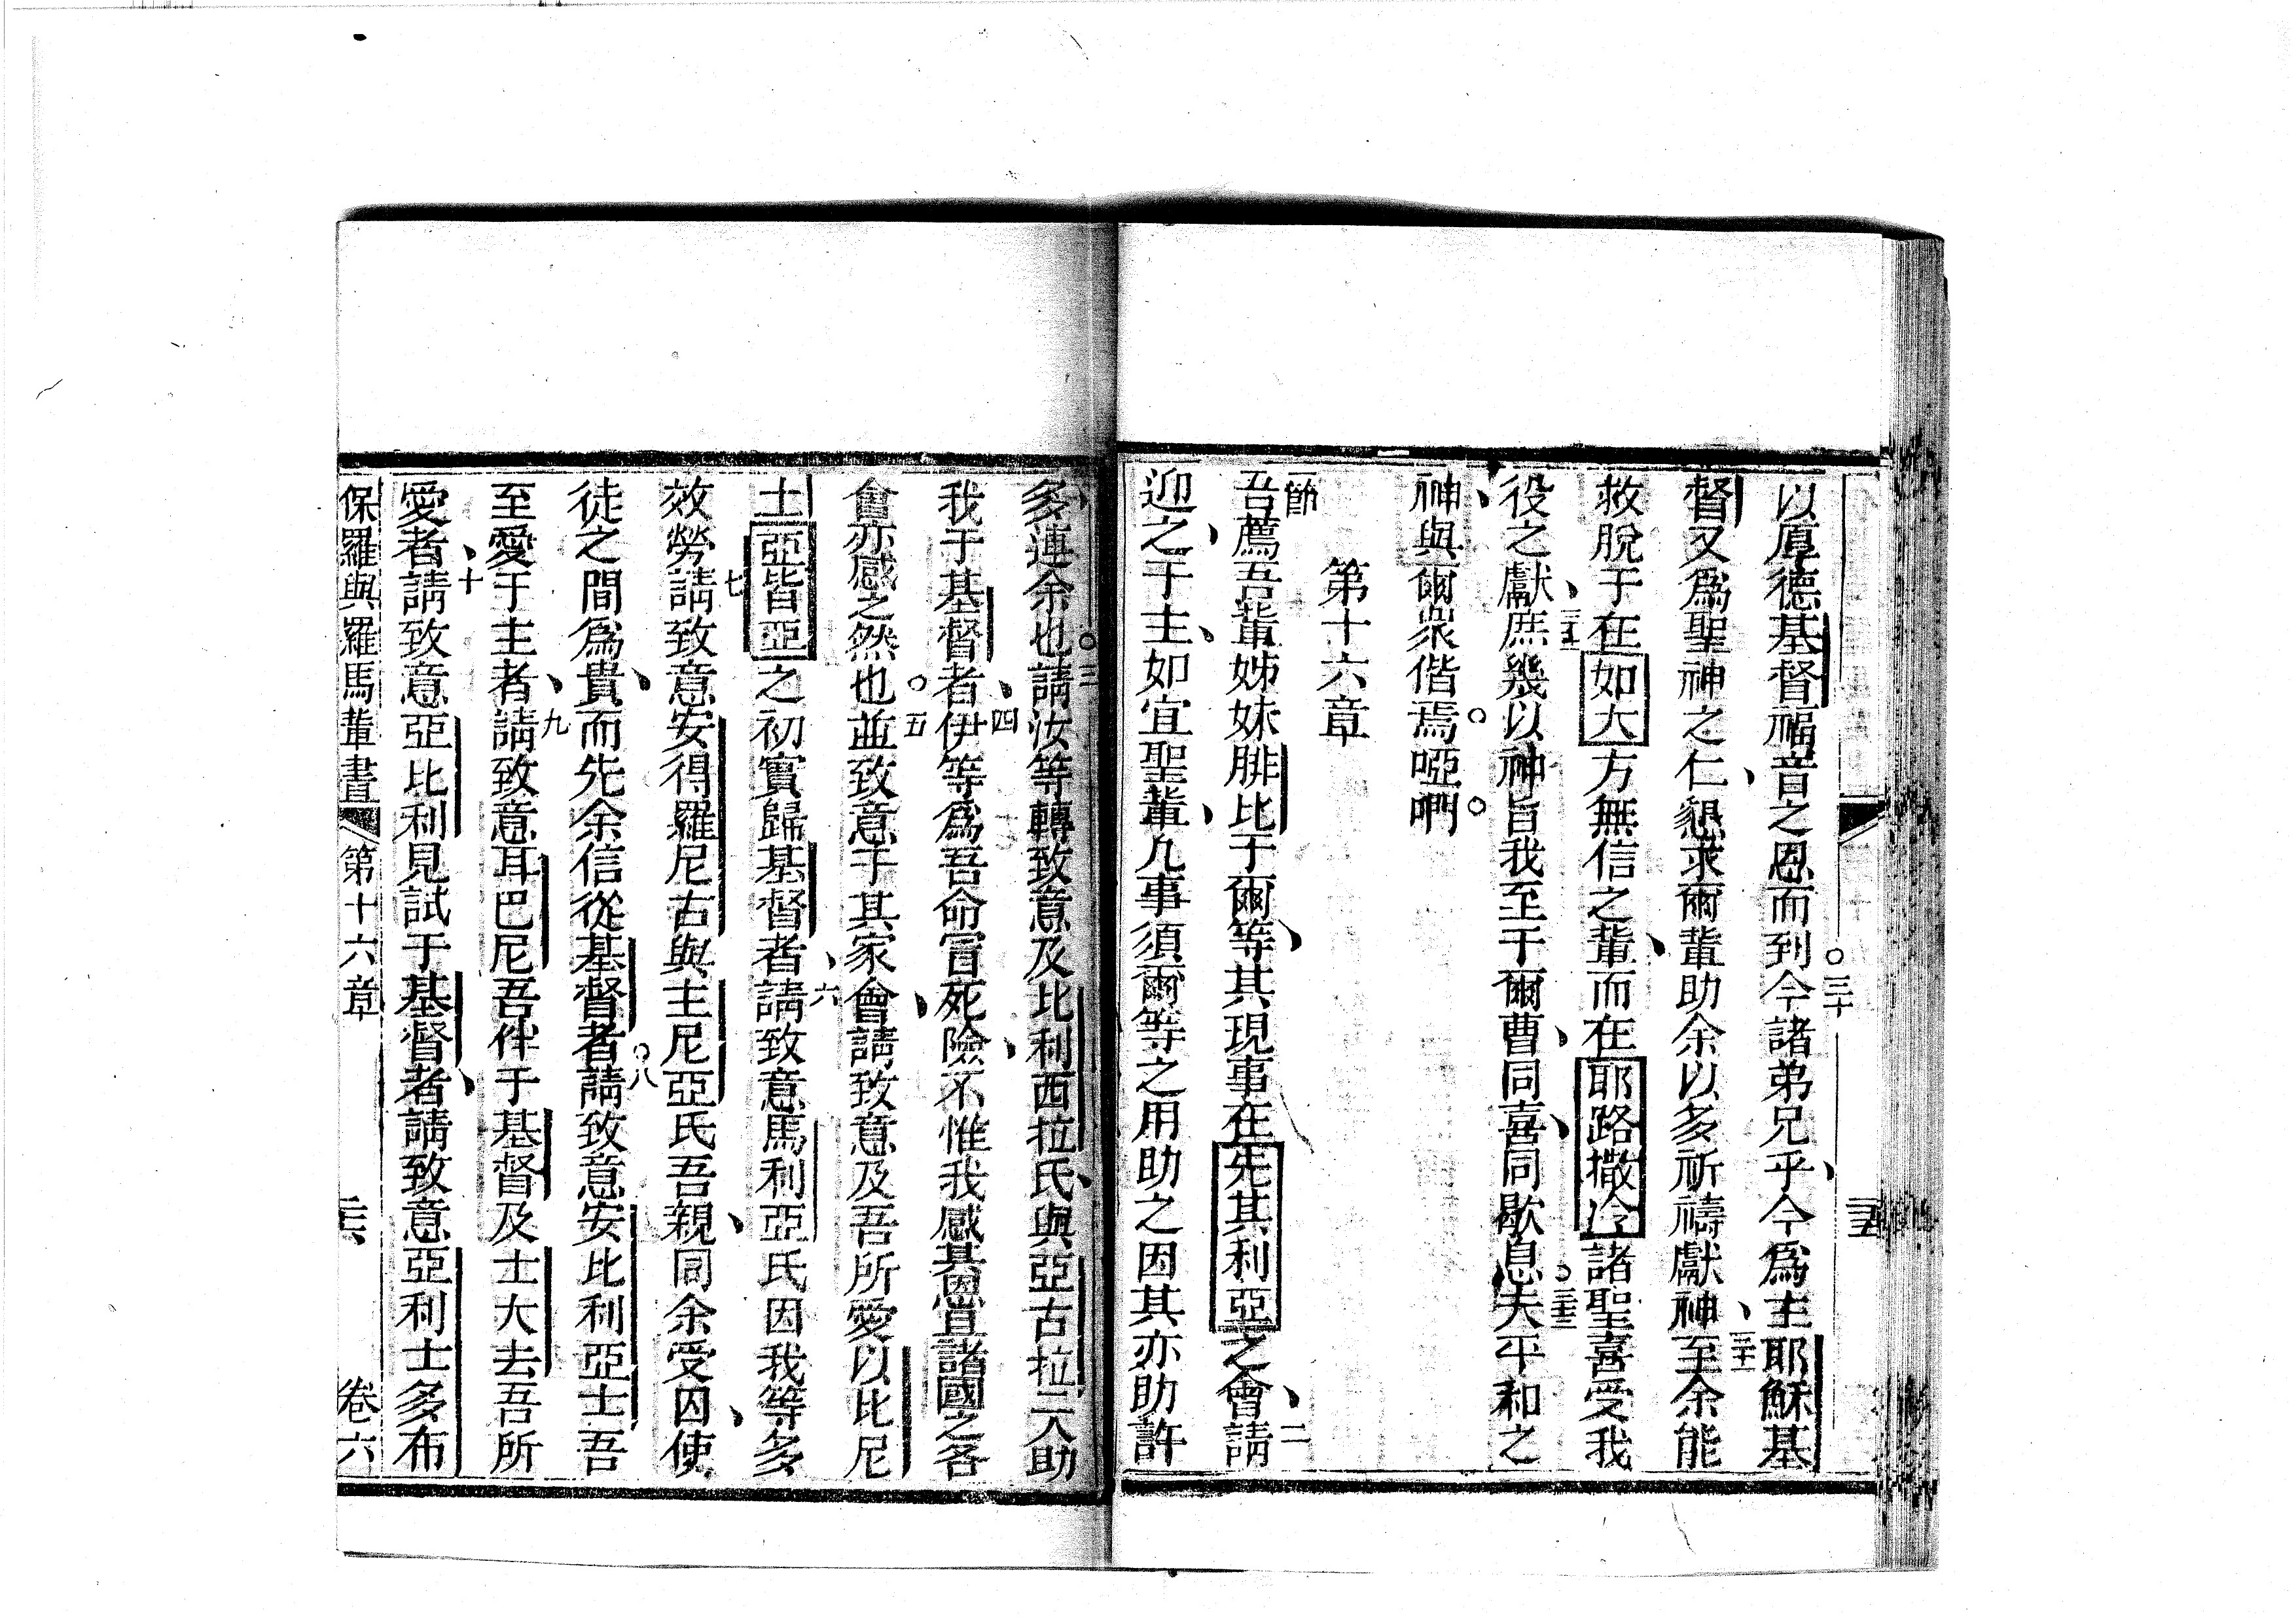 以厚德基督福音之恩而到○三十今諸弟兄乎、今為主耶穌基
督又為聖神之仁、懇求爾輩助余以多祈禱獻神、三十一至余能
救脫于在如大方無信之輩、而在耶路撒冷諸聖喜受我
役之獻、三十二庶幾以神旨我至于爾曹、同喜、同歇息○三十三夫平和之
神、與爾眾偕焉○啞呵○
第十六章
一節吾薦吾輩姊妹腓比于爾等、其現事在先其利亞之會、二請
迎之、于主、如宜聖輩、凡事須爾等之用助之因其亦助許
多、連余也○三請汝等轉致意及比利西拉氏、與亞古拉二人助
我于基督者、四伊等為吾命冒死險、不惟我感其恩豈諸國之各
會亦感之然也○五並致意于其家會、請致意及吾所愛以比尼
士亞皆亞之初實歸基督者、六請致意馬利亞氏因我等多
效勞七請致意安得羅尼古與主尼亞氏吾親、同余受囚、使
徒之間為貴、而先余信從基督者○八請致意安比利亞士吾
至愛于主者、九請致意耳巴尼吾伴于基督及士大去吾所
愛者、十請致意亞比利見試于基督者、請致意亞利士多布
保羅與羅馬輩書 第十六章 三六 卷六